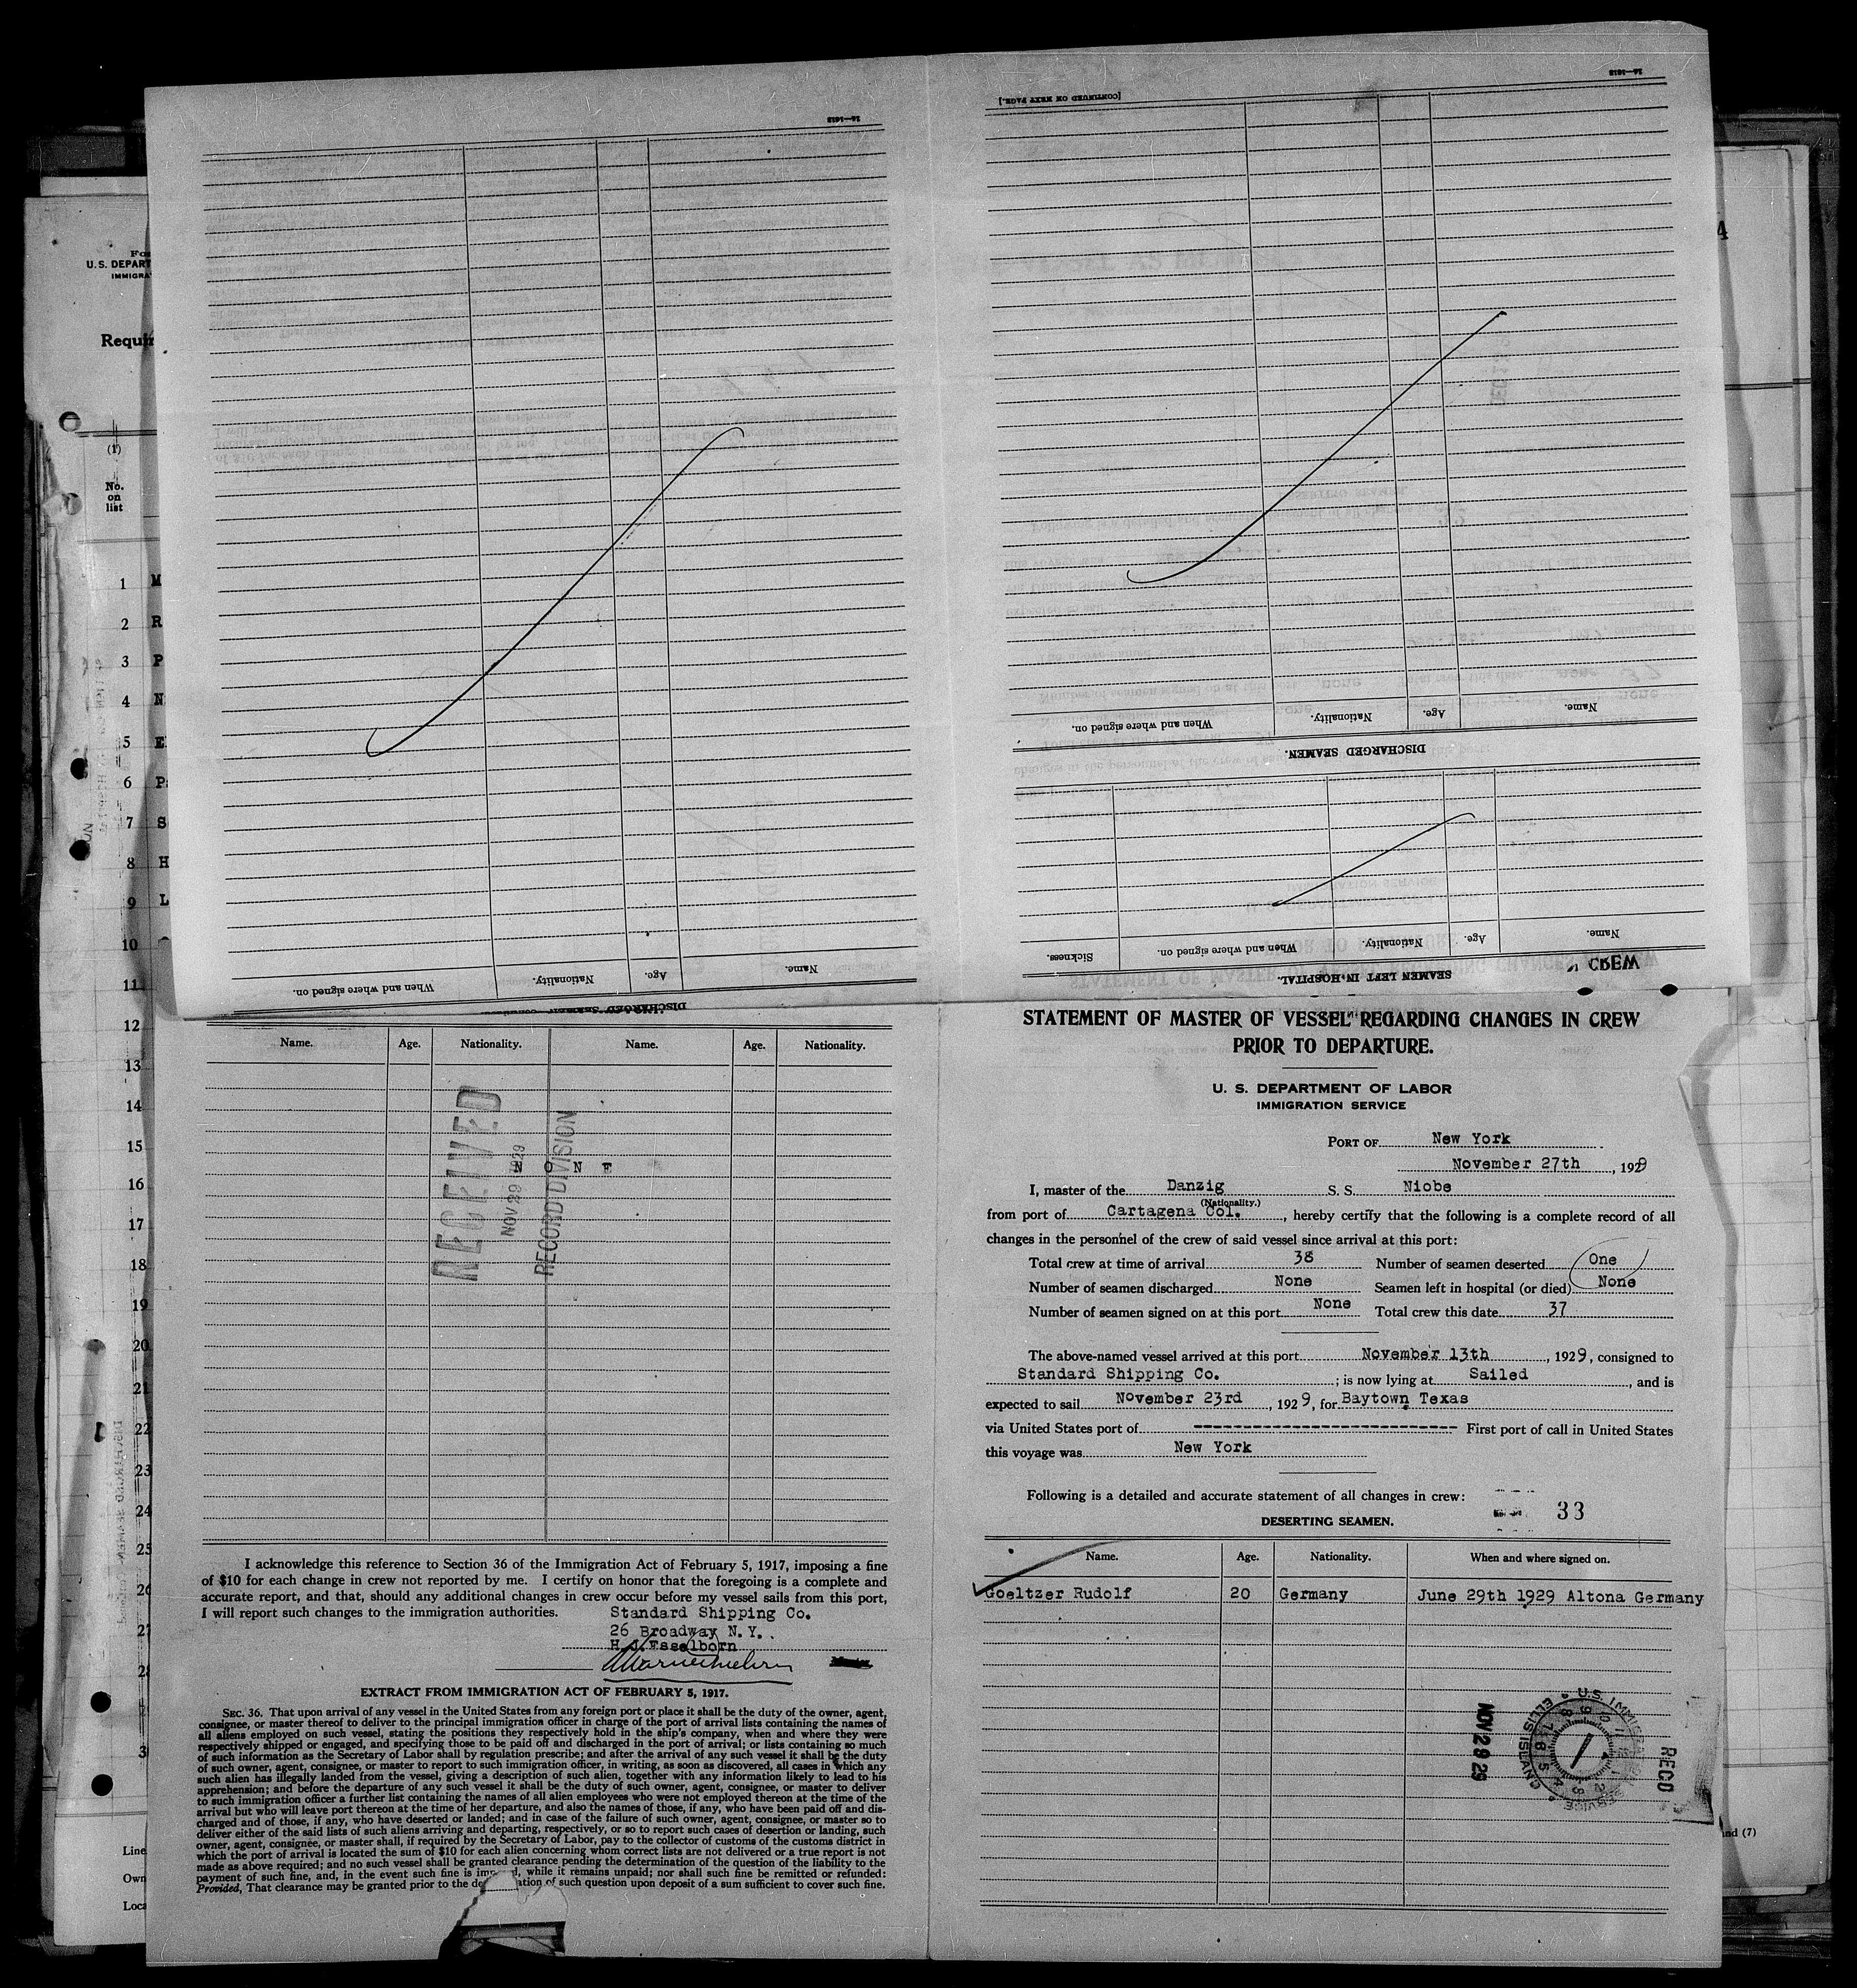 16—1618
[CONTINUED ON NEXT PAGE.]
16—1618
Name.
Age.
Nationality.
When and where signed on.
DISCHARGED SEAMEN
Name.
Age.
Nationality.
When and where signed on.
DISCHARGED SEAMEN.
Name.
Age.
Nationality.
When and where signed on.
Sickness.
SEAMEN LEFT IN HOSPITAL.
CREW
U. S. DEPART
IMMIGRA
Requir
(1)
No.
on
list
1 M
2 R
3 P
4 N
5 E
6 P
7 S
8 H
9 L
10
11
12
13
14
15
16
17
18
19
20
21
22
23
24
25
Line
Own
Loca
4
and (7)
Name. Age. Nationality. Name. Age. Nationality.
N O N E
RECEIVED
NOV 29 1929
RECORD DIVISION
I acknowledge this reference to Section 36 of the Immigration Act of February 5, 1917, imposing a fine
of $10 for each change in crew not reported by me. I certify on honor that the foregoing is a complete and
accurate report, and that, should any additional changes in crew occur before my vessel sails from this port,
I will report such changes to the immigration authorities.
Standard Shipping Co.
26 Broadway N.Y.
H.J.Esselborn
EXTRACT FROM IMMIGRATION ACT OF FEBRUARY 5, 1917.
SEC. 36. That upon arrival of any vessel in the United States from any foreign port or place it shall be the duty of the owner, agent,
consignee, or master thereof to deliver to the principal immigration officer in charge of the port of arrival lists containing the names of
all aliens employed on such vessel, stating the positions they respectively hold in the ship's company, when and where they were
respectively shipped or engaged, and specifying those to be paid off and discharged in the port of arrival; or lists containing so much
of such information as the Secretary of Labor shall by regulation prescribe; and after the arrival of any such vessel it shall be the duty
of such owner, agent, consignee, or master to report to such immigration officer, in writing, as soon as discovered, all cases in which any
such alien has illegally landed from the vessel, giving a description of such alien, together with any information likely to lead to his
apprehension; and before the departure of any such vessel it shall be the duty of such owner, agent, consignee, or master to deliver
to such immigration officer a further list containing the names of all alien employees who were not employed thereon at the time of the
arrival but who will leave port thereon at the time of her departure, and also the names of those, if any, who have been paid off and dis-
charged and of those, if any, who have deserted or landed; and in case of the failure of such owner, agent, consignee, or master so to
deliver either of the said lists of such aliens arriving and departing, respectively, or so to report such cases of desertion or landing, such
owner, agent, consignee, or master shall, if required by the Secretary of Labor, pay to the collector of customs of the customs district in
which the port of arrival is located the sum of $10 for each alien concerning whom correct lists are not delivered or a true report is not
made as above required; and no such vessel shall be granted clearance pending the determination of the question of the liability to the
payment of such fine, and, in the event such fine is imp d, while it remains unpaid; nor shall such fine be remitted or refunded:
Provided, That clearance may be granted prior to the de ation of such question upon deposit of a sum sufficient to cover such fine.
STATEMENT OF MASTER OF VESSEL REGARDING CHANGES IN CREW
PRIOR TO DEPARTURE.
U. S. DEPARTMENT OF LABOR
IMMIGRATION SERVICE
PORT OF New York
November 27th, 1929
I, master of the Danzig S. S. Niobe
(Nationality.)
from port of Cartagena Col., hereby certify that the following is a complete record of all
changes in the personnel of the crew of said vessel since arrival at this port:
Total crew at time of arrival 38 Number of seamen deserted One
Number of seamen discharged None Seamen left in hospital (or died) None
Number of seamen signed on at this port None Total crew this date 37
The above-named vessel arrived at this port November 13th, 1929, consigned to
Standard Shipping Co.; is now lying at Sailed, and is
expected to sail November 23rd, 1929, for Baytown Texas
via United States port of ---------------------------- First port of call in United States
this voyage was New York
Following is a detailed and accurate statement of all changes in crew:
33
DESERTING SEAMEN.
Name. Age. Nationality. When and where signed on.
Goeltzer Rudolf 20 Germany June 29th 1929 Altona Germany
NOV 29 29
U.S. IMMIGRATION SERVICE
ELLIS ISLAND
RECD